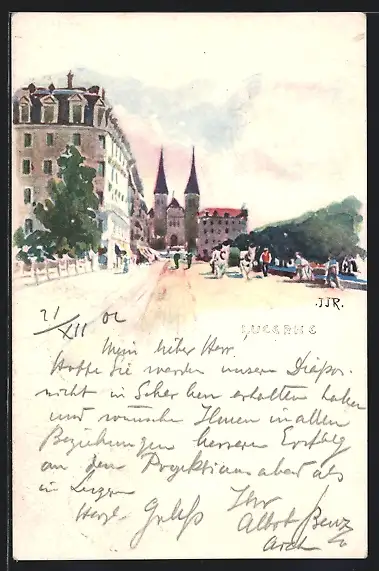 J.J.R.
LUCERNE
21/XII 02
Mein lieber Herr
Hoffe Sie werden unsere Diapos.
nicht in Scherben erhalten haben
und wünsche Ihnen in allen
Beziehungen besseren Erfolg
an den Projektionsabend als
in Luzern
Herzl. Gruß Ihr
Albert Benz
Arch